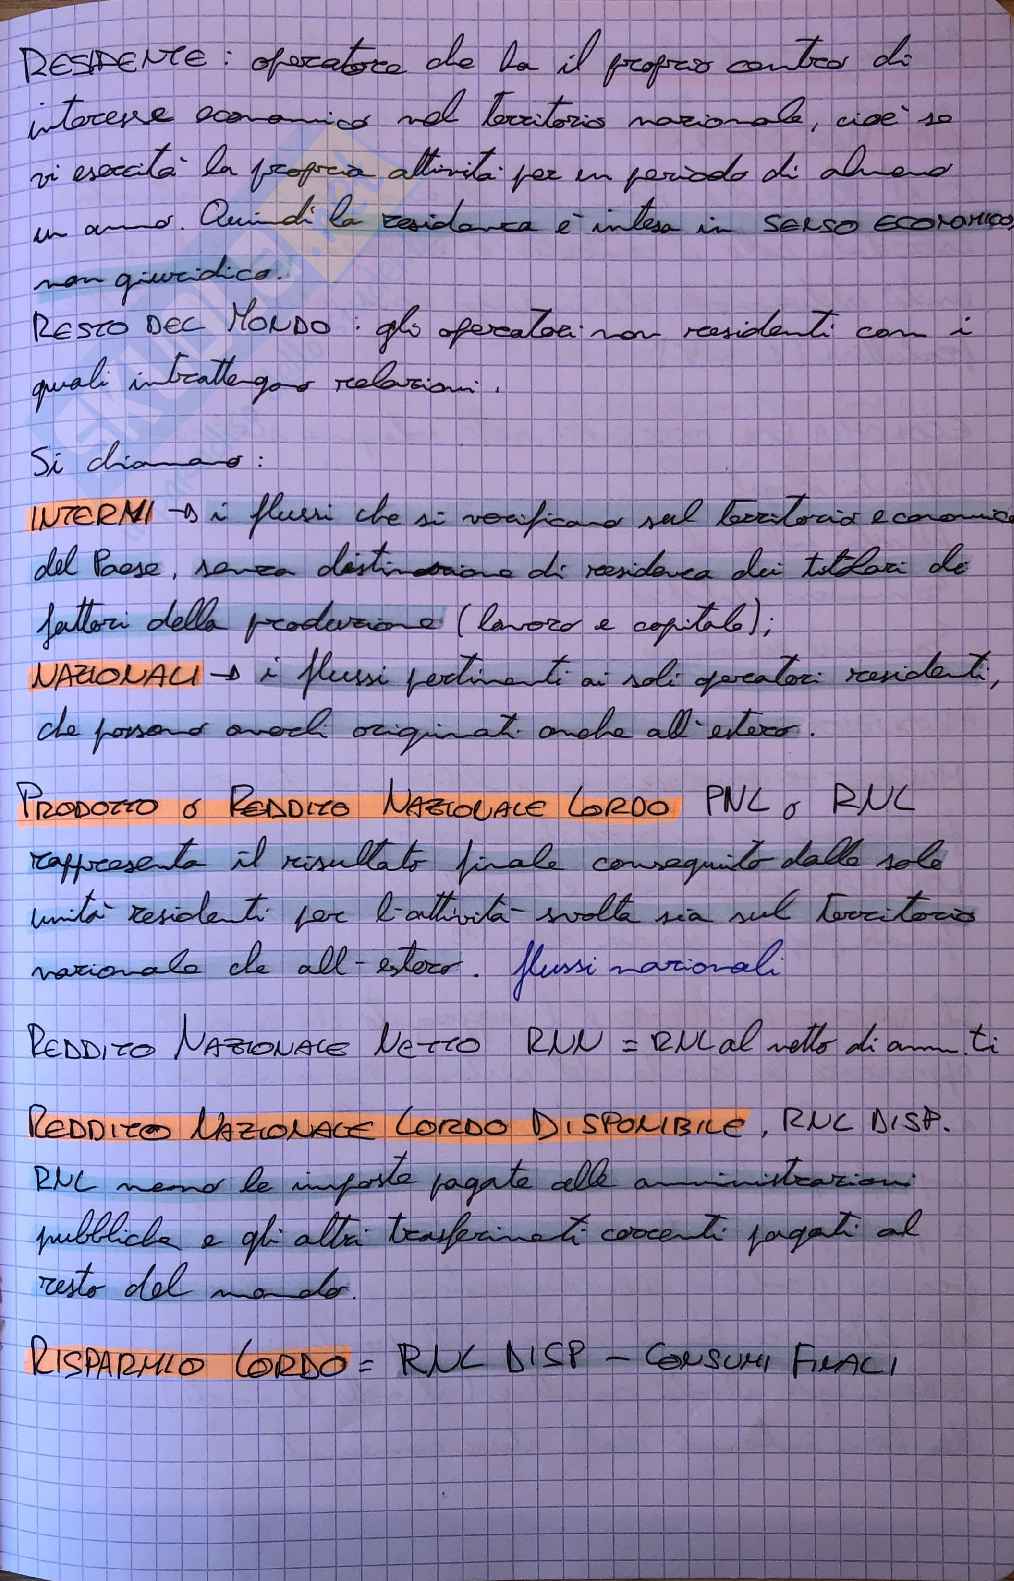 RESIDENTE : operatore che ha il proprio centro di
interesse economico nel territorio nazionale, cioè se
vi esercita la propria attività per un periodo di almeno
un anno. Quindi la residenza è intesa in SENSO ECONOMICO,
non giuridico.
RESTO DEL MONDO : gli operatori non residenti con i
quali intrattengono relazioni.
Si chiamano :
INTERNI → i flussi che si verificano sul territorio economico
del Paese, senza distinzione di residenza dei titolari dei
fattori della produzione (lavoro e capitale);
NAZIONALI → i flussi pertinenti ai soli operatori residenti,
che possono averli originati anche all'estero.
PRODOTTO o REDDITO NAZIONALE LORDO PNL o RNL
rappresenta il risultato finale conseguito dalle sole
unità residenti per l'attività svolta sia sul territorio
nazionale che all'estero. flussi nazionali
REDDITO NAZIONALE NETTO RNN = RNL al netto di amm.ti
REDDITO NAZIONALE LORDO DISPONIBILE, RNL DISP.
RNL meno le imposte pagate alle amministrazioni
pubbliche e gli altri trasferimenti correnti pagati al
resto del mondo.
RISPARMIO LORDO = RNL DISP - CONSUMI FINALI